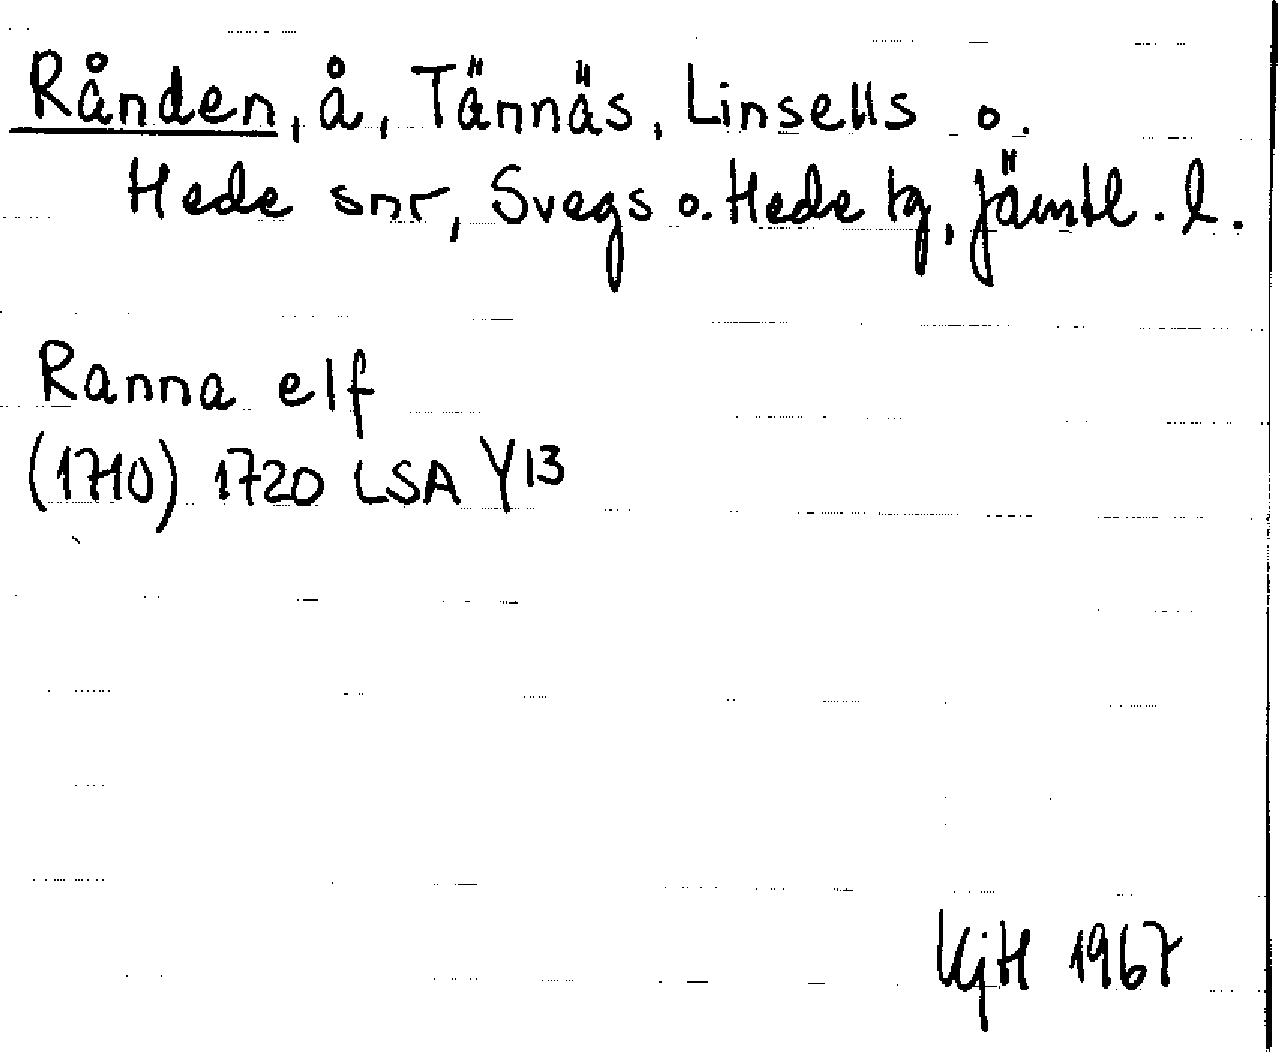 Rånden, å, Tännäs, Linsells o.
Hede snr, Svegs o. Hede tg, Jämtl. l.
Ranna elf
(1710) 1720 LSA Y13
KjH 1967